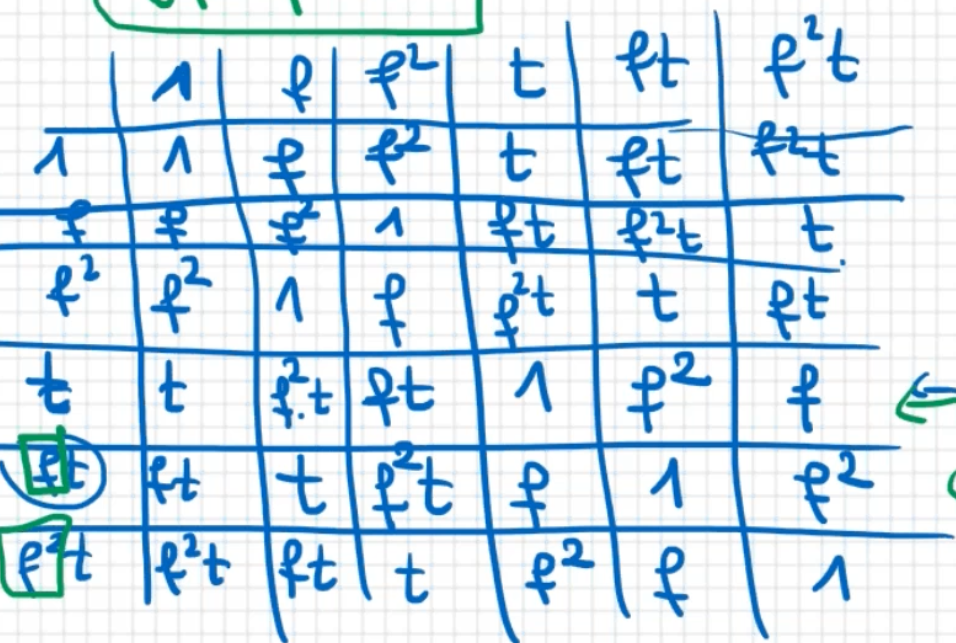 1 f f² t ft f²t
1 1 f f² t ft f²t
f f f² 1 ft f²t t
f² f² 1 f f²t t ft
t t f²t ft 1 f² f
ft ft t f²t f 1 f²
f²t f²t ft t f² f 1